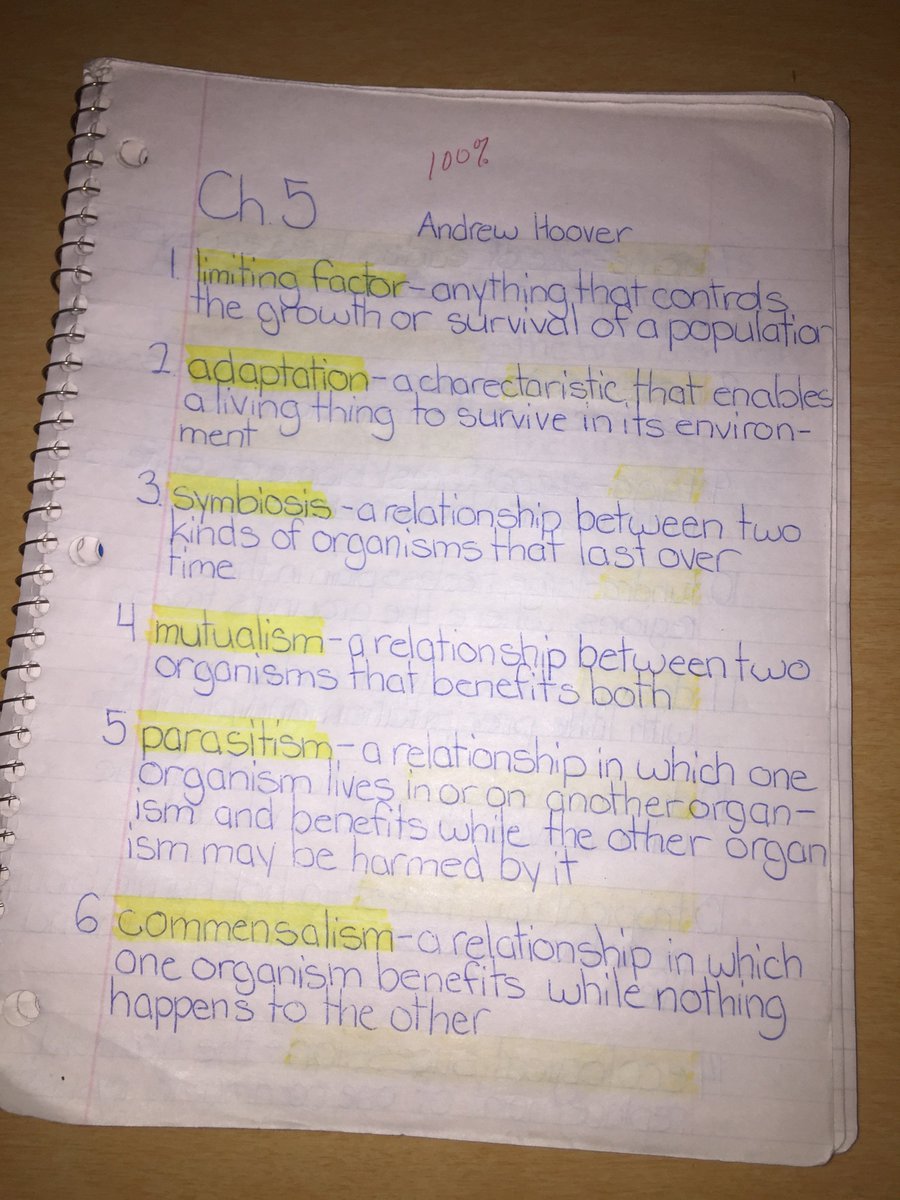 100%
Ch. 5
Andrew Hoover
1. limiting factor - anything that controls
the growth or survival of a population
2. adaptation - a charectaristic that enables
a living thing to survive in its environ-
ment
3. symbiosis - a relationship between two
kinds of organisms that last over
time
4 mutualism - a relationship between two
organisms that benefits both
5 parasitism - a relationship in which one
organism lives in or on another organ-
ism and benefits while the other organ
ism may be harmed by it
6 commensalism - a relationship in which
one organism benefits while nothing
happens to the other